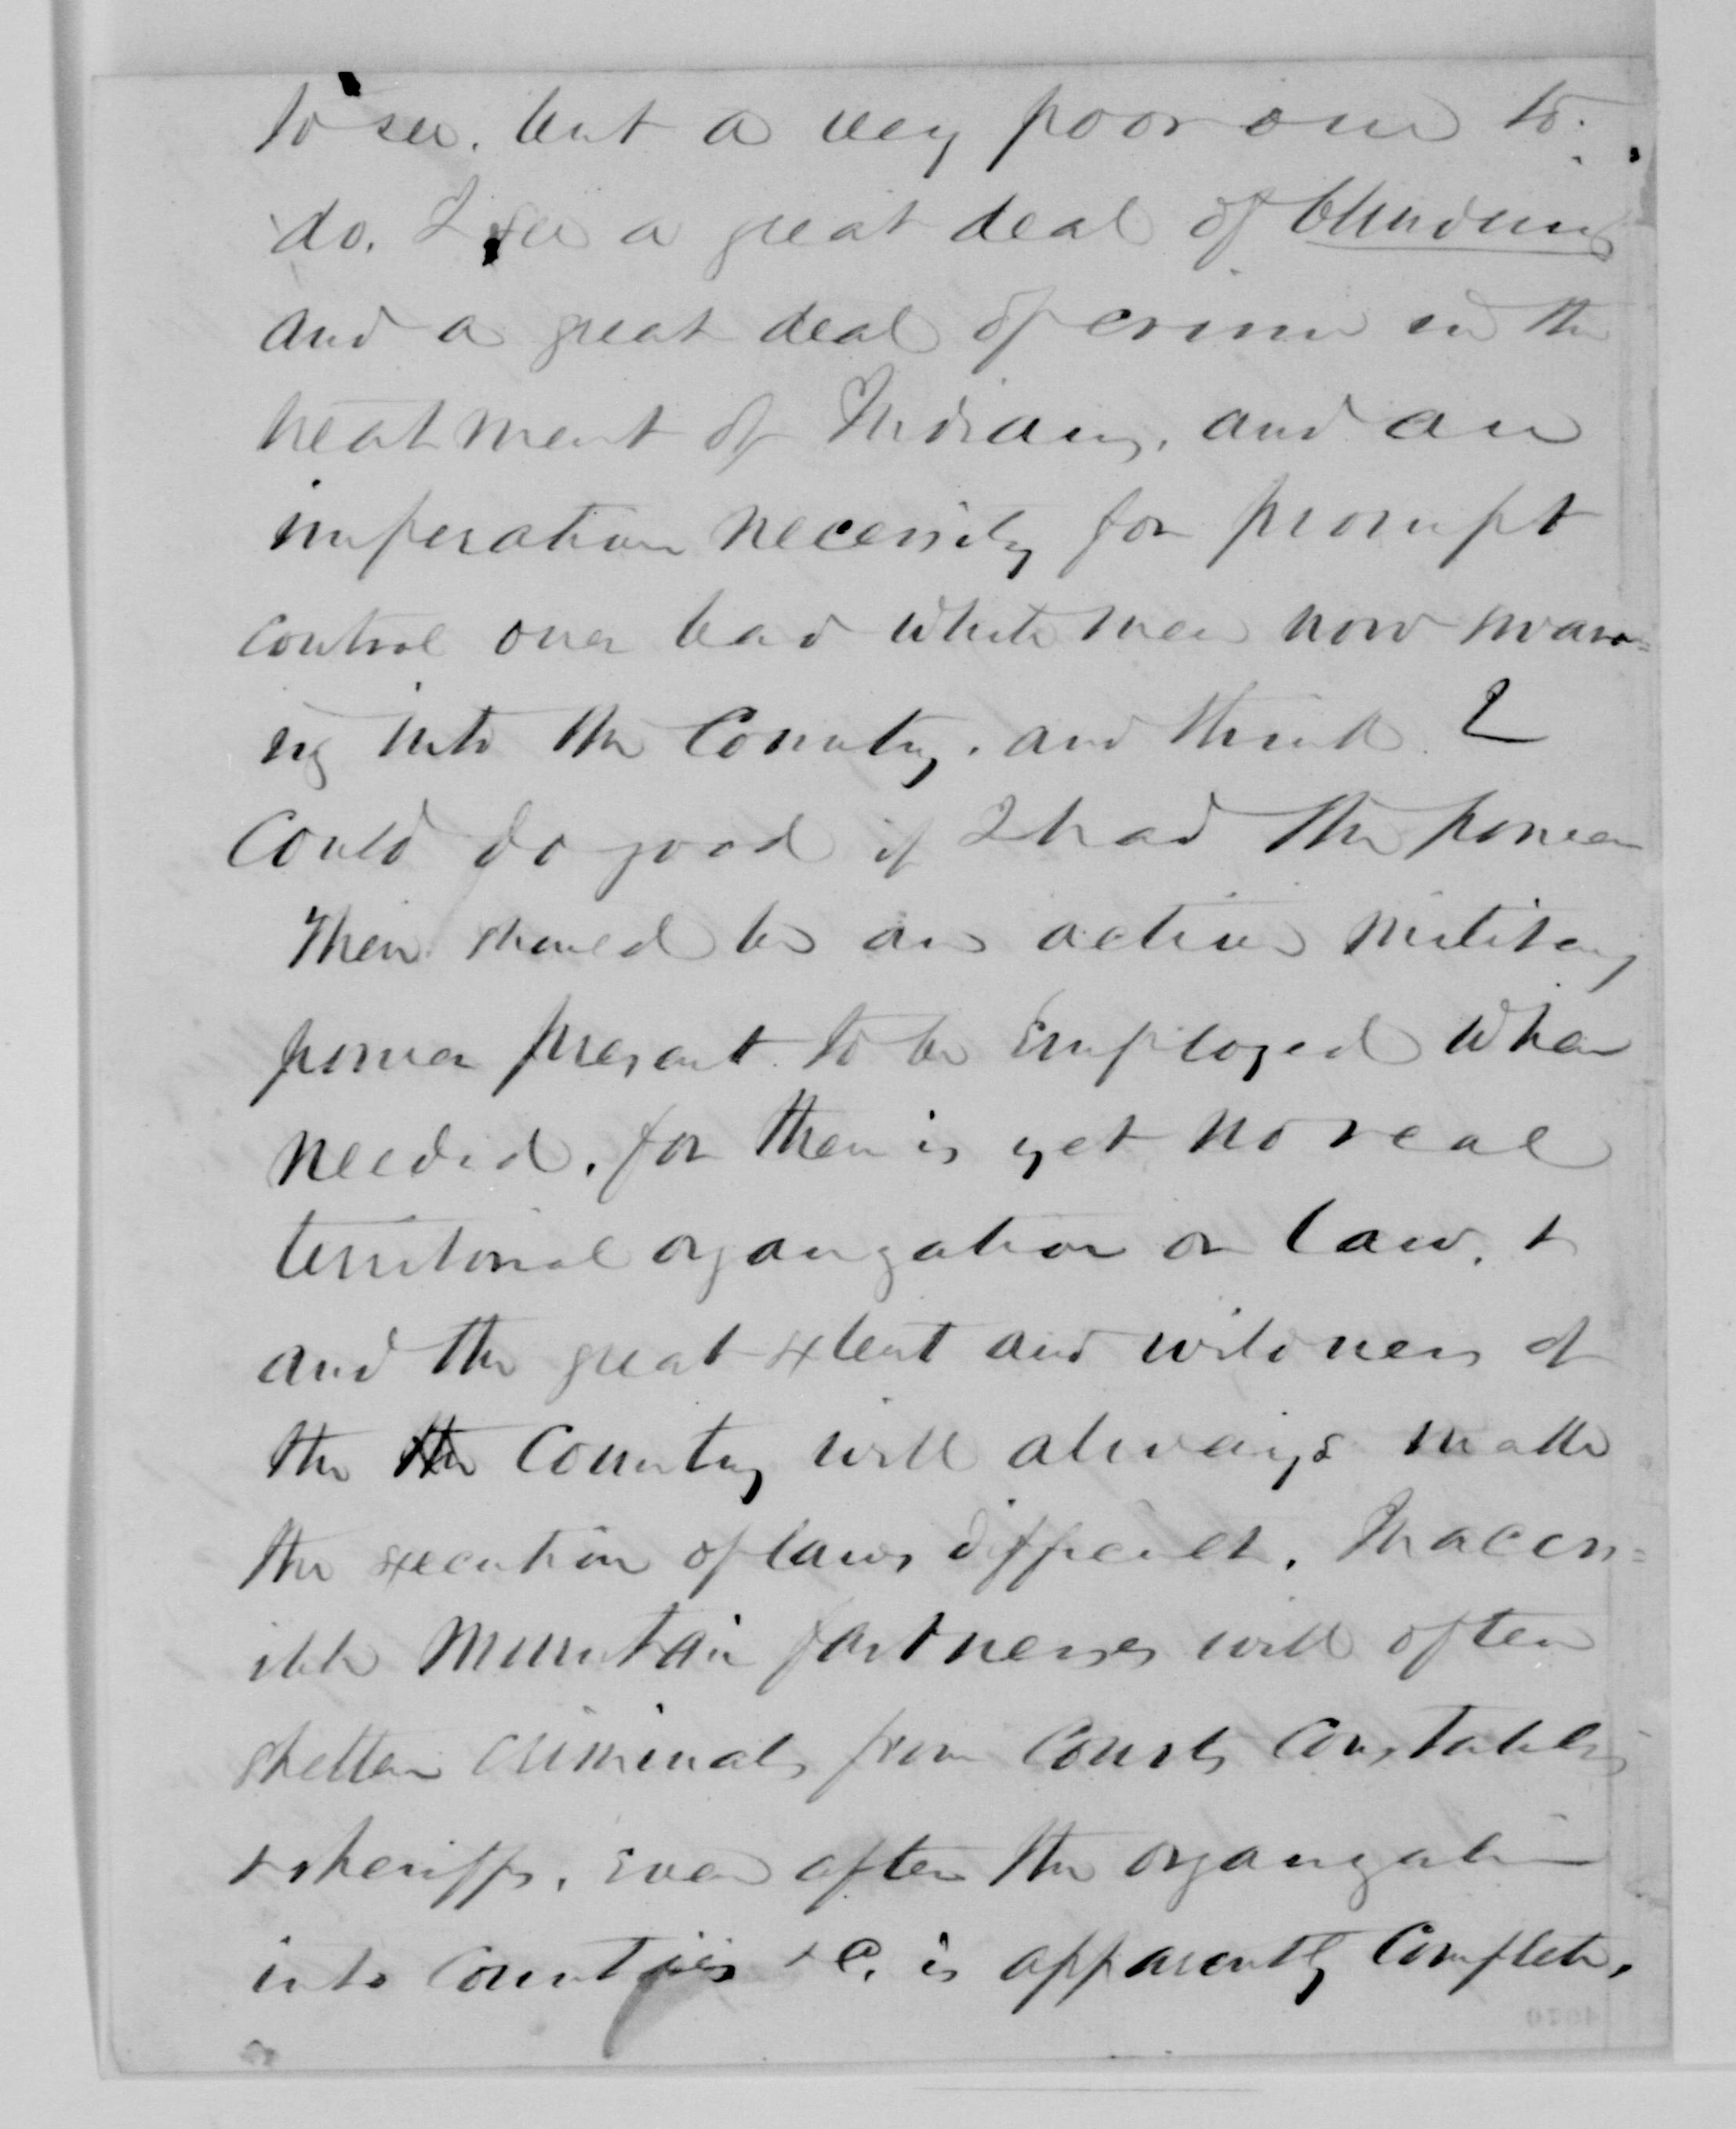 to see, but a very poor one to
do. I see a great deal of blundering
and a great deal of crime in the
treatment of Indians, and an
imperative necessity for prompt
control over bad white men now swarm=
ing into the Country, and think I
could do good if I had the power
There should be an active military
power present to be employed when
needed, for there is yet no real
territorial organization or law, &
and the great extent and wildness of
the the Country will always make
the execution of laws difficult. Inaccess=
ible mountain fastnesses will often
shelter criminals from Courts Constables
& sheriffs, even after the organization
into Counties &c. is apparently complete.